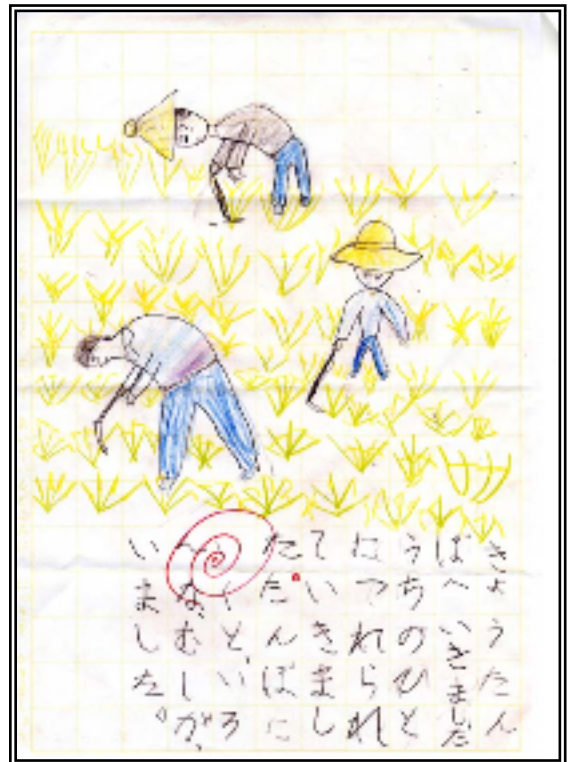 きょうたん
ぼへいきました
うちのひと
につれられ
ていきまし
た。たんぼに
いくと、いろ
な、むしが、
いました。